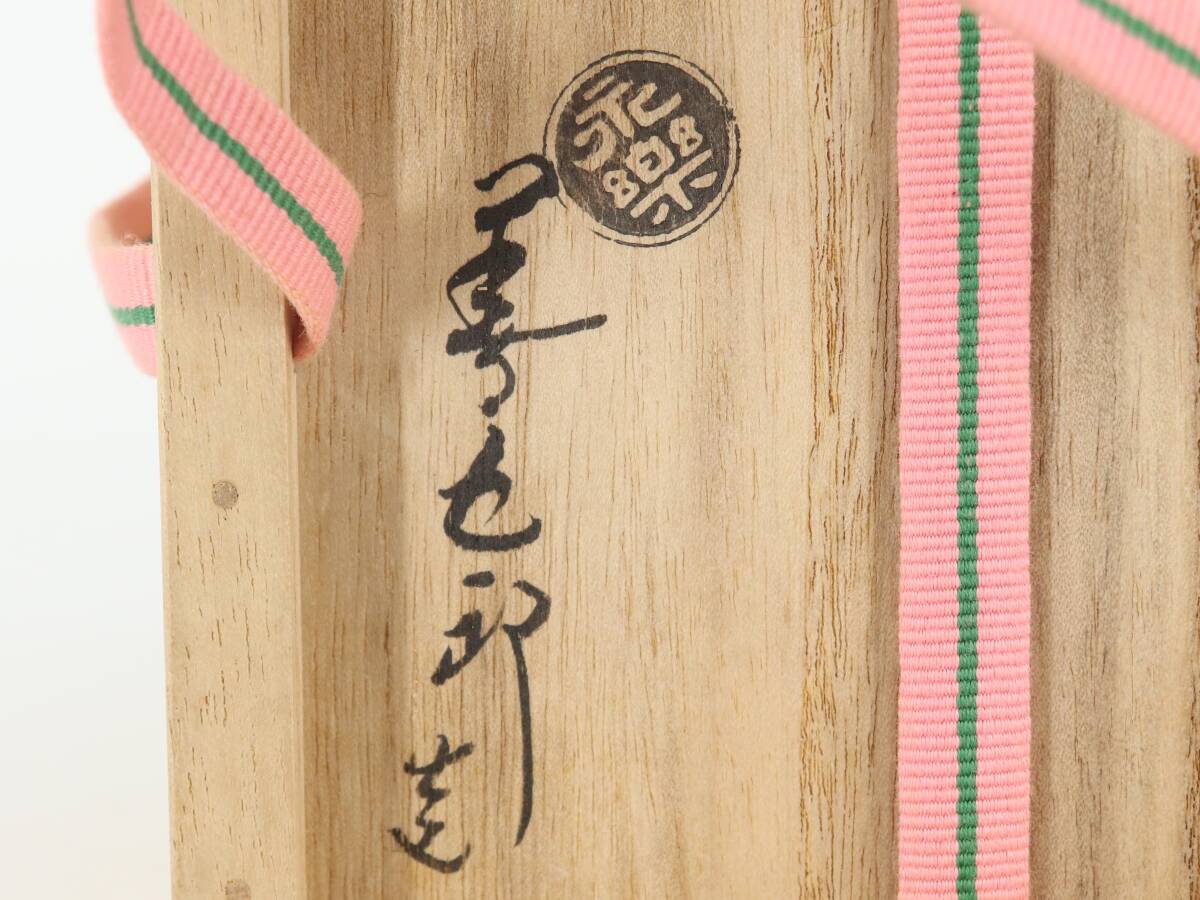 永樂
善五郎 造